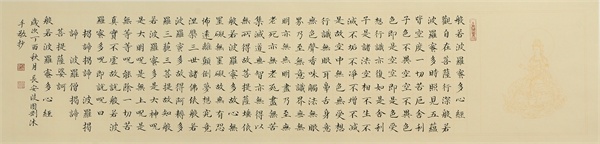 般若波羅蜜多心經
觀自在菩薩行深般若
波羅蜜多時照見五蘊
皆空度一切苦厄舍利
子色不異空空不異色
色即是空空即是色受
想行識亦復如是舍利
子是諸法空相不生不
滅不垢不淨不增不減
是故空中無色無受想
行識無眼耳鼻舌身意
無色聲香味觸法無眼
界乃至無意識界無無
明亦無無明盡乃至無
老死亦無老死盡無苦
集滅道無智亦無得以
無所得故菩提薩埵依
般若波羅蜜多故心無
罣礙無罣礙故無有恐
怖遠離顛倒夢想究竟
涅槃三世諸佛依般若
波羅蜜多故得阿耨多
羅三藐三菩提故知般
若波羅蜜多是大神呪
是大明呪是無上呪是
無等等呪能除一切苦
真實不虛故說般若波
羅蜜多呪即說呪曰
揭諦揭諦 波羅揭
諦 波羅僧揭諦
菩提薩婆訶
般若波羅蜜多心經
歲次丁酉秋月長安 園劉沐
手敬抄